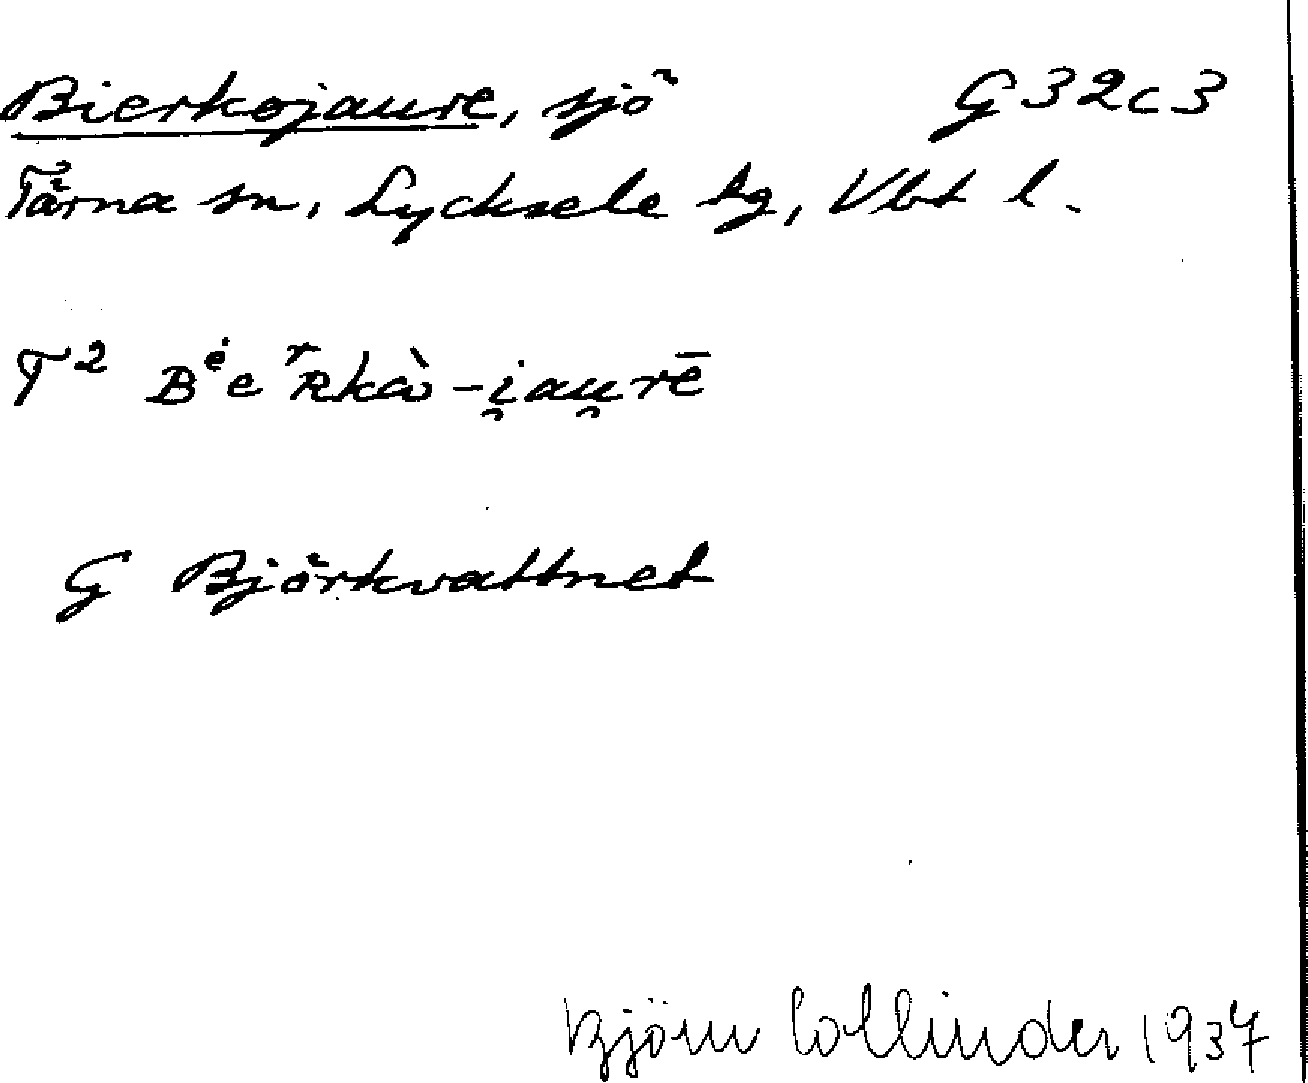 Bierkojaure, sjö G32c3
Tärna sn, Lycksele lg, Vbt l.
T² Bᵉ̇eʳʀkɑ̀ω-i̯au̯rē
G Björkvattnet
Björn Collinder 1937